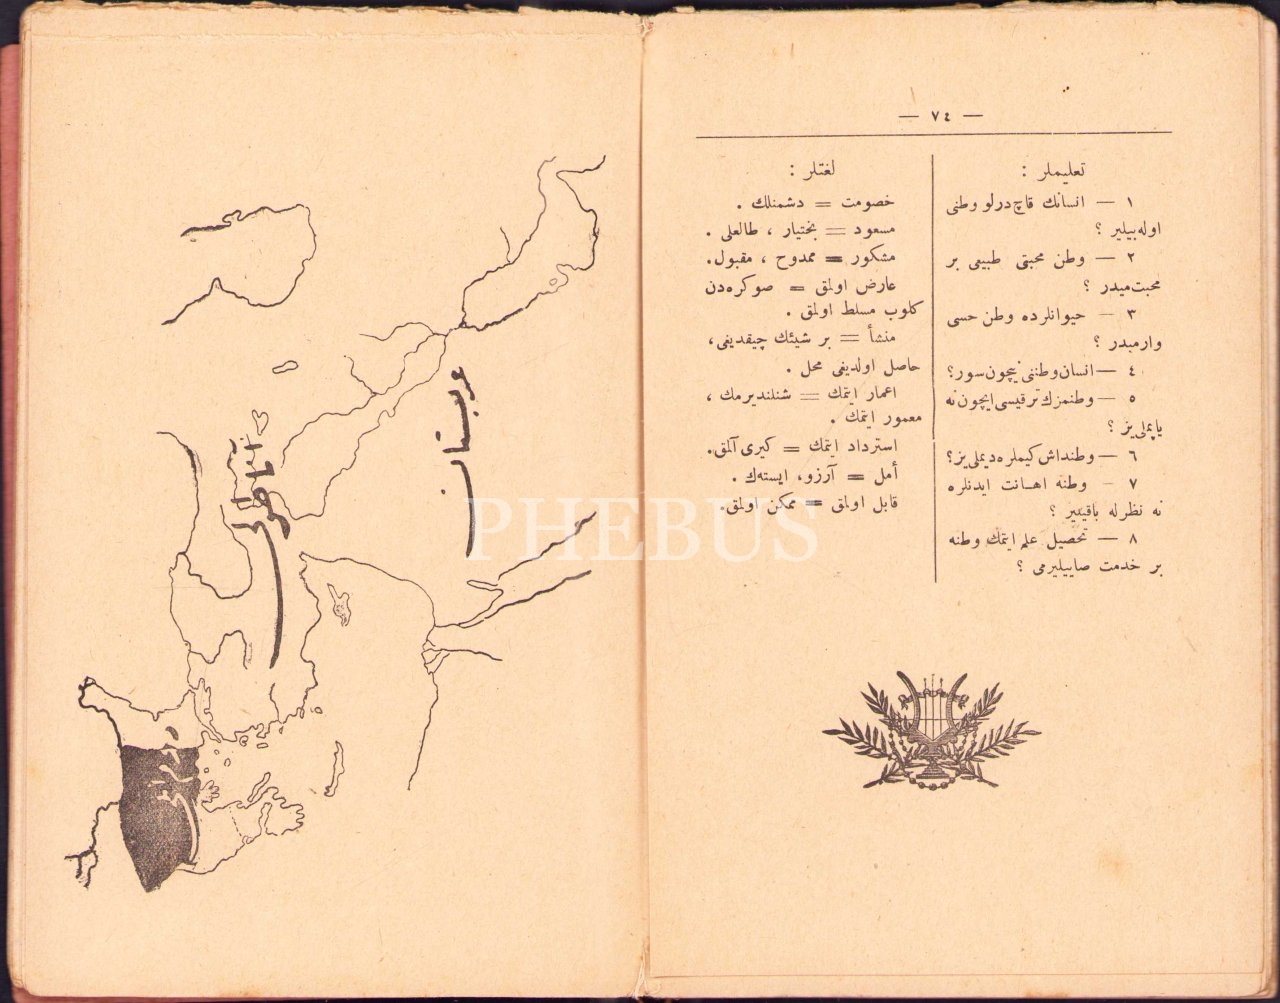 — ٧٤ —
تعليملر :
١ — انسانك قاچ درلو وطنى
اوله‌بيلير ؟
٢ — وطن محبتى طبيعى بر
محبت‌ميدر ؟
٣ — حيوانلرده وطن حسى
وارميدر ؟
٤ — انسان وطننى نيچون سور؟
٥ — وطنمزك ترقيسى ايچون نه
ياپملى‌يز ؟
٦ — وطنداش كيملره ديملى‌يز؟
٧ — وطنه اهانت ايدنلره
نه نظرله باقيلير ؟
٨ — تحصيل علم ايتمك وطنه
بر خدمت صاييليرمى ؟
لغتلر :
خصومت = دشمنلك .
مسعود = بختيار ، طالعلى .
مشكور = ممدوح ، مقبول.
عارض اولمق = صوكره‌دن
كلوب مسلط اولمق .
منشأ = بر شيئك چيقديغى،
حاصل اولديغى محل .
اعمار ايتمك = شنلنديرمك ،
معمور ايتمك .
استرداد ايتمك = كيرى آلمق.
أمل = آرزو، ايستەك .
قابل اولمق = ممكن اولمق.
عربستان
آناطولى
PHEBUS